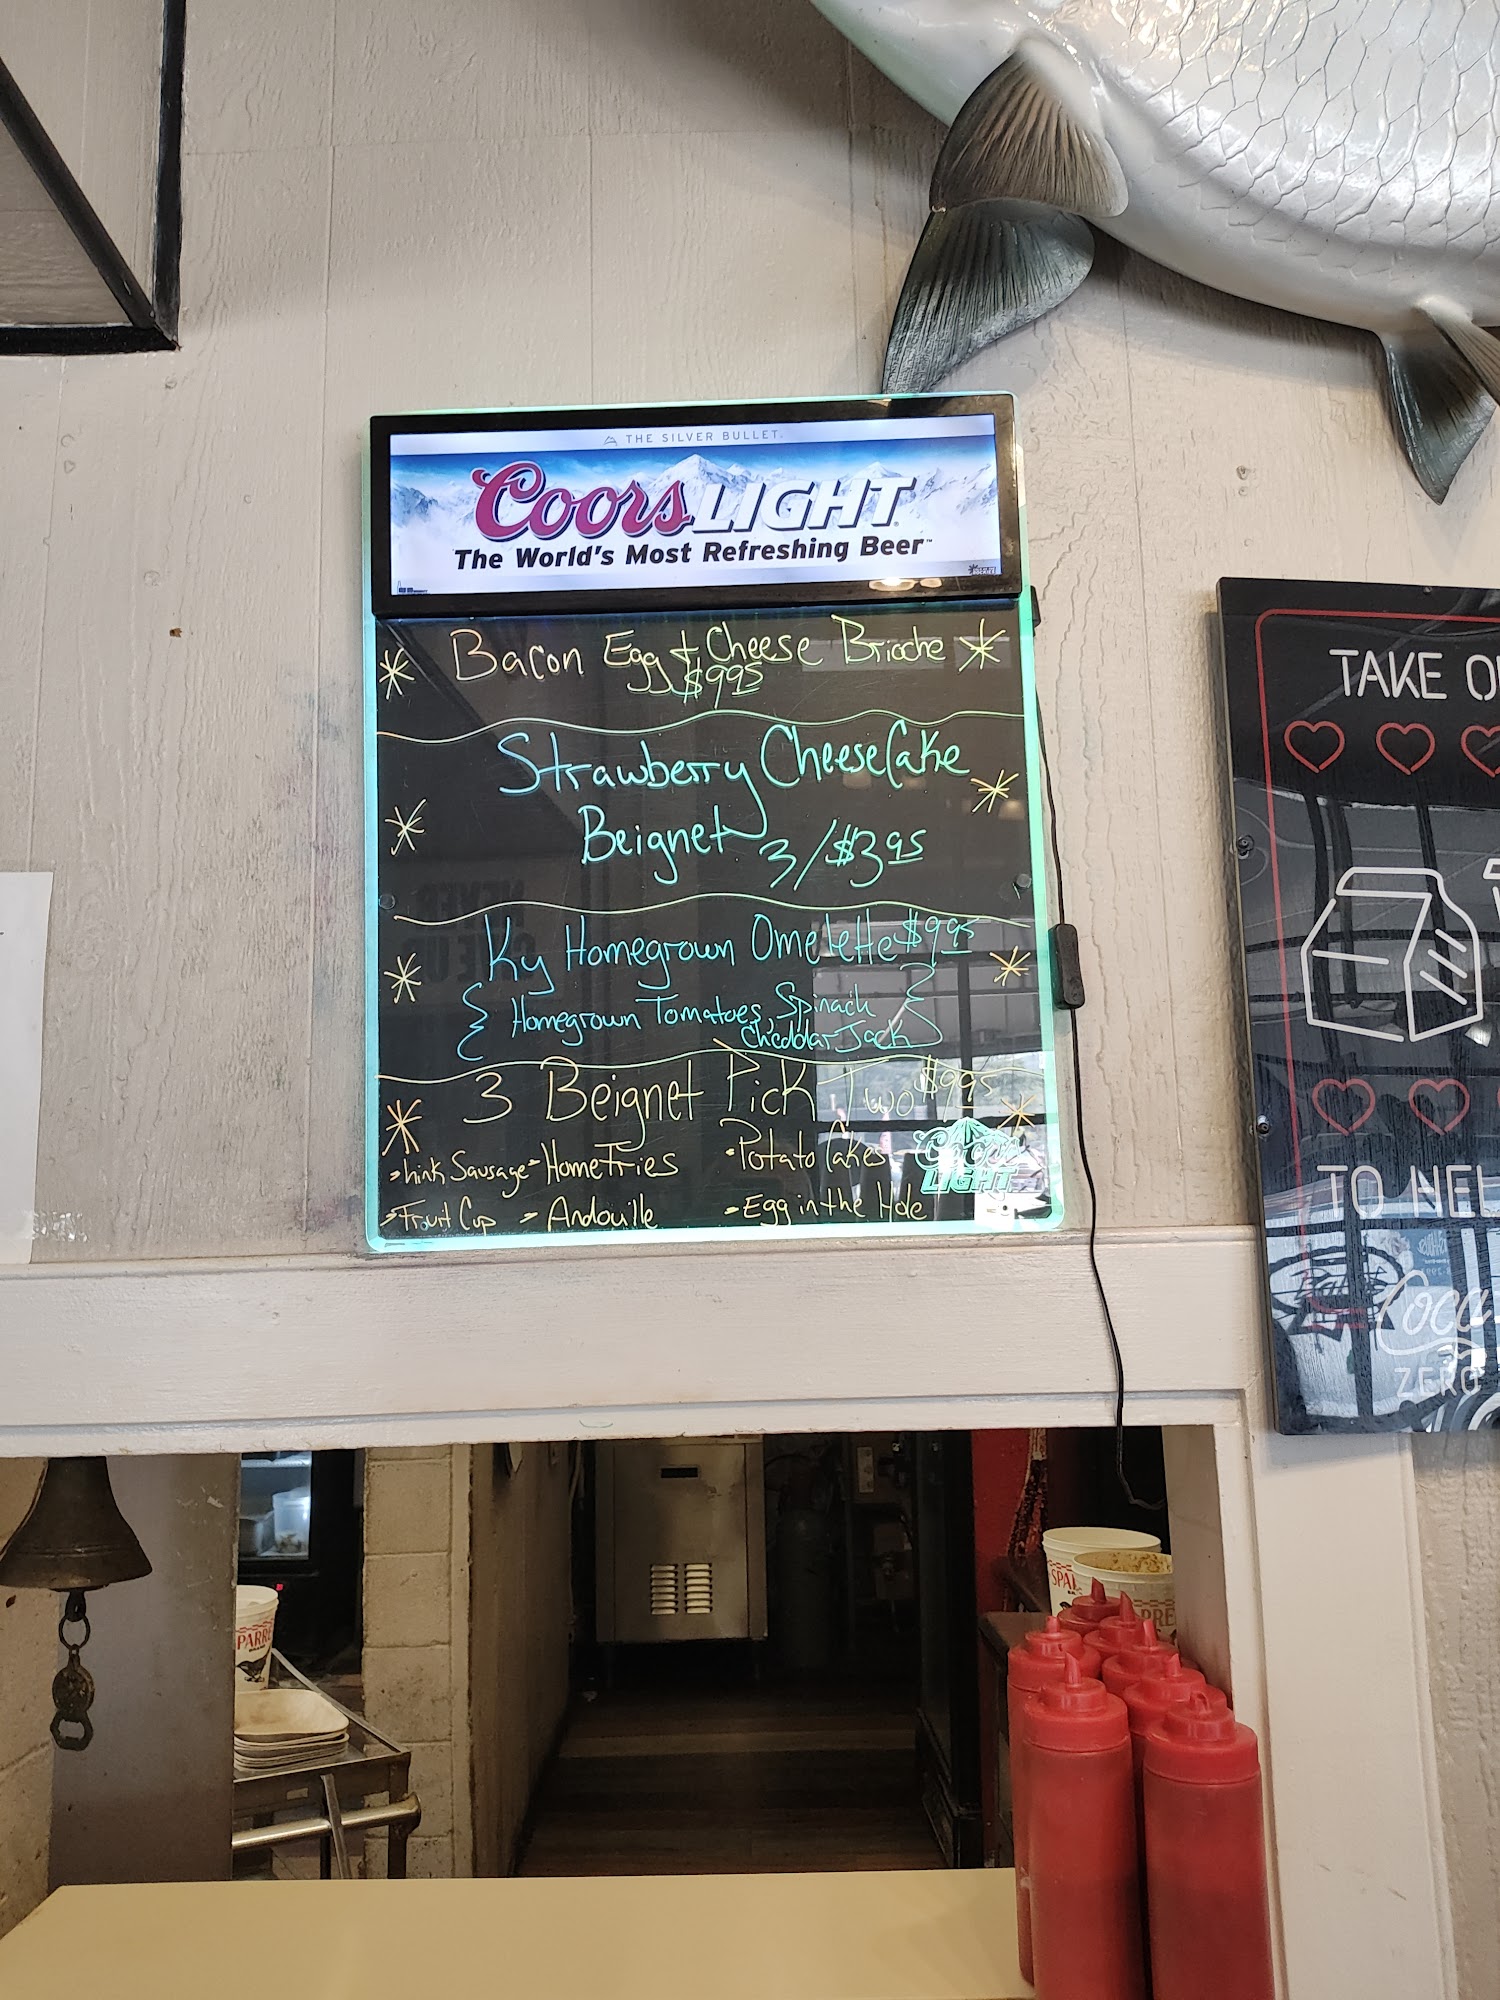 THE SILVER BULLET.
Coors LIGHT
The World's Most Refreshing Beer™
Bacon Egg & Cheese Brioche
$9.95
Strawberry CheeseCake
Beignet 3/$3.95
Ky Homegrown Omelette $9.95
{ Homegrown Tomatoes, Spinach }
Cheddar Jack
3 Beignet Pick Two $9.95
Link Sausage - Home Fries - Potato Cakes
Fruit Cup - Andouille - Egg in the Hole
Coors
LIGHT
TAKE O
TO NEL
Coca
ZERO
SPA
PARRE
RRE